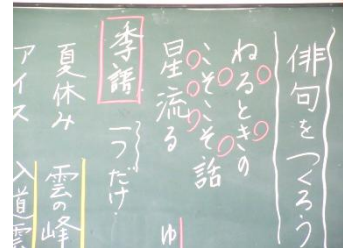 俳句をつくろう
ねるときの
こそこそ話
星流る
季語 一つだけ.
夏休み
雲の峰
アイス
入道雲
ゆ